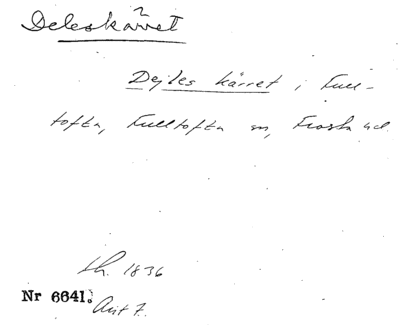 Deleskärret
Dejles kärret i Full-
tofta, Fulltofta sn, Frosta hd.
sh. 1836
Nr 6641.
Akt 7.